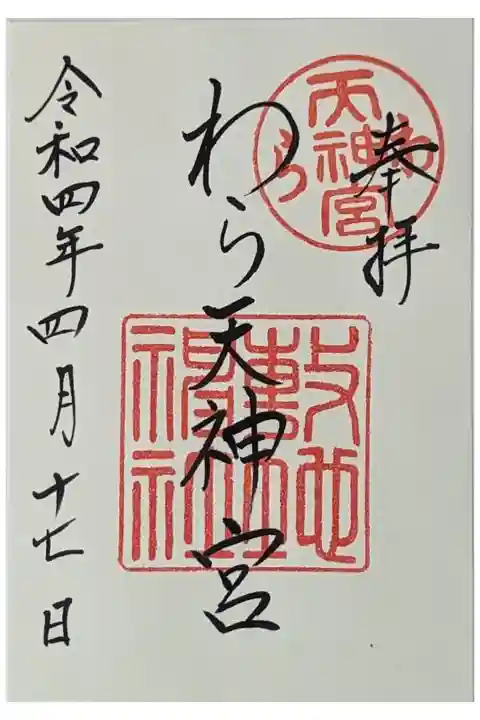 奉拝
わら
天神宮
わら天神宮
敷地神社
令和四年四月十七日